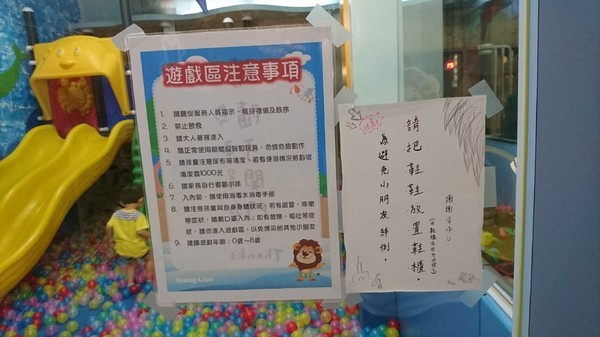 遊戲區注意事項
1. 請聽從服務人員指示，維持禮儀及秩序
2. 禁止飲食
3. 請大人著襪進入
4. 請正常使用相關設施和玩具，勿做危險動作
5. 請孩童注意尿布等清潔，若有使用情況將酌收
清潔費1000元
6. 請家長自行看顧小孩
7. 入內前，請使用消毒水消毒手部
8. 請注意孩童與自身身體狀況，若有感冒、咳嗽
等症狀，請戴口罩入內；如有發燒、嘔吐等症
狀，請勿進入遊戲區，以免傳染給其他小朋友
9. 建議遊戲年齡：0歲～8歲
Young Lion
請把鞋鞋放置鞋櫃，
為避免小朋友絆倒。
謝謝合作